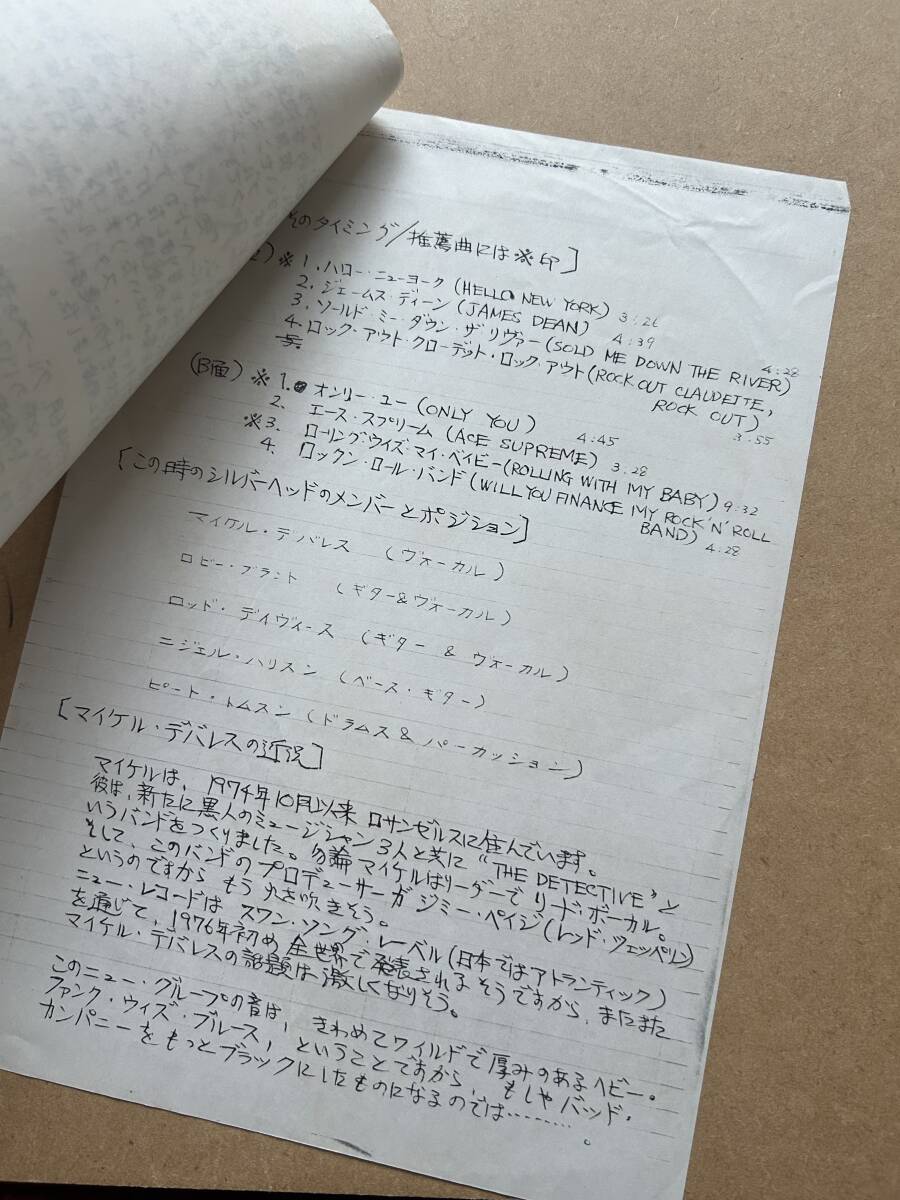 そのタイミング/推薦曲には※印]
)※1. ハロー・ニューヨーク(HELLO NEW YORK) 3:26
2. ジェームス・ディーン(JAMES DEAN) 4:39
3. ソールド・ミー・ダウン・ザ・リヴァー(SOLD ME DOWN THE RIVER) 4:28
4. ロック・アウト・クローデット・ロック・アウト(ROCK OUT CLAUDETTE,
ROCK OUT) 3:55
(B面)※1. オンリー・ユー(ONLY YOU) 4:45
2. エース・スプリーム(ACE SUPREME) 3:28
※3. ローリング・ウィズ・マイ・ベイビー(ROLLING WITH MY BABY) 9:32
4. ロックン・ロール・バンド(WILL YOU FINANCE MY ROCK'N'ROLL
BAND) 4:28
[この時のシルバーヘッドのメンバーとポジション]
マイケル・デバレス (ヴォーカル)
ロビー・ブラント (ギター&ヴォーカル)
ロッド・デイヴィース (ギター & ヴォーカル)
ニジェル・ハリスン (ベース・ギター)
ピート・トムスン (ドラムス & パーカッション)
[マイケル・デバレスの近況]
マイケルは、1974年10月以来 ロサンゼルスに住んでいます。
彼は、新たに黒人のミュージシャン3人と共に “THE DETECTIVE”と
いうバンドをつくりました。勿論 マイケルはリーダーで リード・ボーカル。
そして、このバンドのプロデューサーが ジミー・ペイジ(レッド・ツェッペリン)
というのですから もう 火を吹きそう。
ニュー・レコードは スワン・ソング・レーベル(日本ではアトランティック)
を通じて、1976年初め 全世界で発表されるそうですから、またまた
マイケル・デバレスの話題は激しくなりそう。
このニュー・グループの音は、きわめてワイルドで厚みのあるヘビー・
ファンク・ウィズ・ブルース、ということですから、もしやバッド・
カンパニーをもっとブラックにしたものになるのでは………。